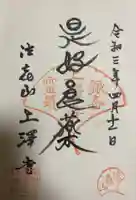 令和三年四月十一日
是好良薬
法喜山上澤寺